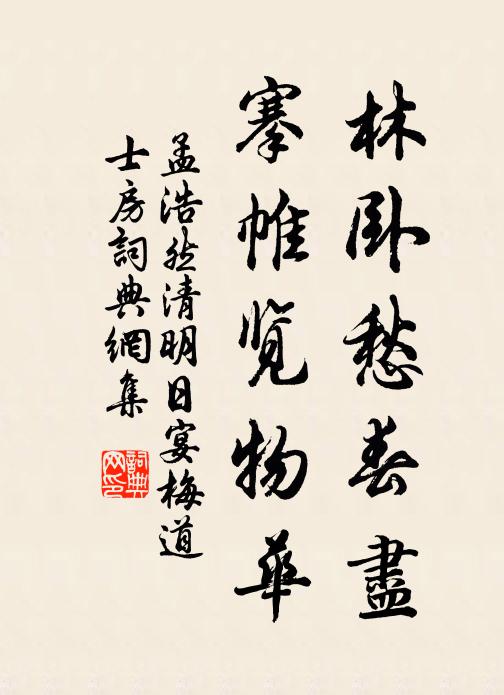 林卧愁春盡
搴帷览物華
孟浩然清明日宴梅道
士房詞典網集
詞典
网印